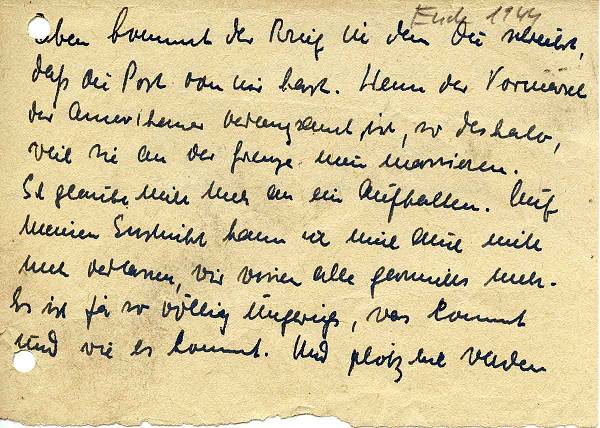 Ende 1944
eben kommt der Brief in dem Du schreibst,
daß Du Post von mir hast. Wenn der Vormarsch
der Amerikaner verlangsamt ist, so deshalb,
weil sie an der Grenze nun massieren.
Ich glaube nicht mehr an ein Aufhalten. Auf
meinen Instinkt kann ich mich auch nicht
mehr verlassen, wir wissen alle garnichts mehr.
Es ist ja so völlig ungewiss, was kommt
und wie es kommt. Und plötzlich werden